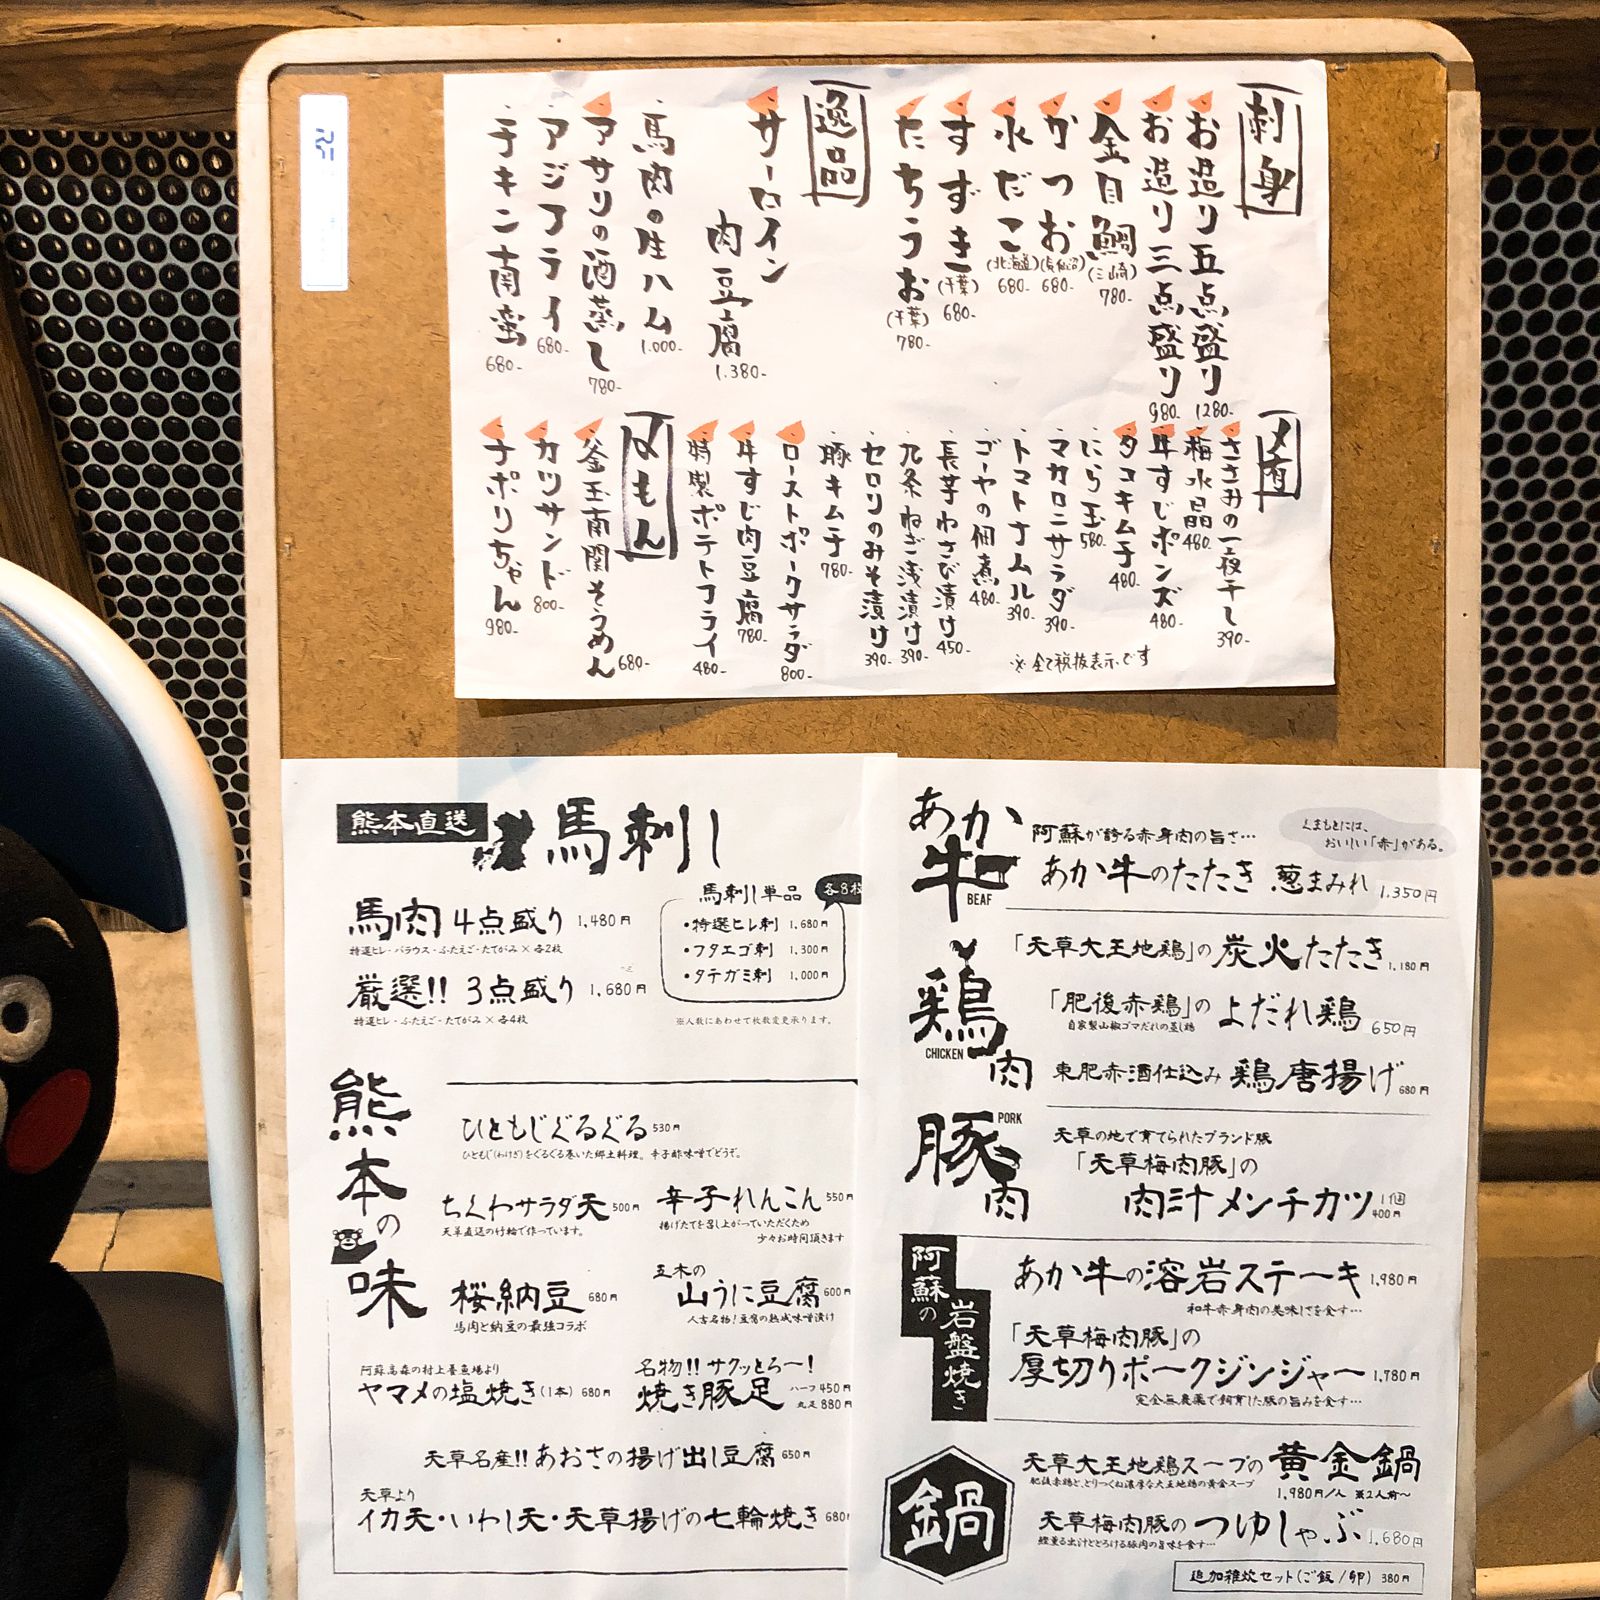 刺身
お造り五点盛り 1280-
お造り三点盛り 980-
金目鯛(三崎) 780-
かつお(気仙沼) 680-
水だこ(北海道) 680-
すずき(千葉) 680-
たちうお(千葉) 780-
逸品
サーロイン
肉豆腐 1.380-
馬肉の生ハム 1.000-
アサリの酒蒸し 780-
アジフライ 680-
チキン南蛮 680-
〆肴
ささみの一夜干し 390-
梅水晶 480-
牛すじポンズ 480-
タコキムチ 480-
にら玉 580-
マカロニサラダ 390-
トマトナムル 390-
ゴーヤの佃煮 480-
長芋わさび漬け 450-
九条ねぎ浅漬け 390-
セロリのみそ漬け 390-
豚キムチ 780-
ローストポークサラダ 800-
牛すじ肉豆腐 780-
特製ポテトフライ 480-
〆もん
釜玉南関そうめん 680-
カツサンド 800-
ナポリちゃん 980-
※全て税抜表示です
熊本直送 馬刺し
馬肉4点盛り 1,480円
特選ヒレ・バラウス・ふたえご・たてがみ×各2枚
厳選!! 3点盛り 1,680円
特選ヒレ・ふたえご・たてがみ×各4枚
馬刺し単品 各8枚
・特選ヒレ刺 1,680円
・フタエゴ刺 1,300円
・タテガミ刺 1,000円
※人数にあわせて枚数変更承ります。
熊本の味
ひともじぐるぐる 530円
ひともじ(わけぎ)をぐるぐる巻いた郷土料理。辛子酢味噌でどうぞ。
ちくわサラダ天 500円
天草直送の竹輪で作っています。
辛子れんこん 550円
揚げたてを召し上がっていただくため
少々お時間頂きます
桜納豆 680円
馬肉と納豆の最強コラボ
五木の
山うに豆腐 600円
人吉名物!豆腐の熟成味噌漬け
阿蘇高森の村上養魚場より
ヤマメの塩焼き(1本) 680円
名物!! サクッとろ〜!
焼き豚足 ハーフ 450円
丸足 880円
天草名産!! あおさの揚げ出し豆腐 650円
天草より
イカ天・いわし天・天草揚げの七輪焼き 680円
あか牛
BEAF
くまもとには、
おいしい「赤」がある。
阿蘇が誇る赤身肉の旨さ…
あか牛のたたき 葱まみれ 1,350円
鶏肉
CHICKEN
「天草大王地鶏」の炭火たたき 1,180円
「肥後赤鶏」のよだれ鶏 650円
自家製山椒ゴマだれの蒸し鶏
東肥赤酒仕込み 鶏唐揚げ 680円
豚肉
PORK
天草の地で育てられたブランド豚
「天草梅肉豚」の
肉汁メンチカツ 1個 400円
阿蘇の
岩盤焼き
あか牛の溶岩ステーキ 1,980円
和牛赤身肉の美味しさを食す…
「天草梅肉豚」の
厚切りポークジンジャー 1,780円
完全無農薬で飼育した豚の旨みを食す…
鍋
天草大王地鶏スープの黄金鍋
肥後赤鶏と、とりつくね濃厚な大王地鶏の黄金スープ
1,980円/人 ※2人前〜
天草梅肉豚のつゆしゃぶ 1,680円
鰹薫る出汁ととろける豚肉の旨味を食す…
追加雑炊セット(ご飯/卵) 380円